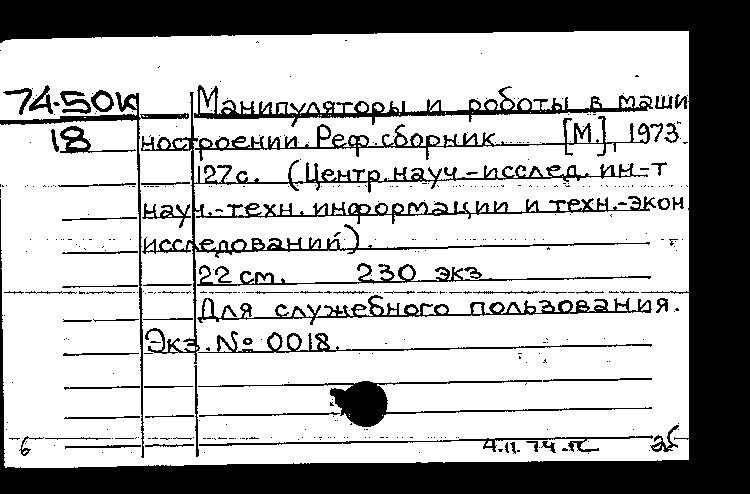 74-50к Манипуляторы и роботы в маши
18 ностроении. Реф. сборник. [М.], 1973
127 с. (Центр. науч.-исслед. ин-т
науч.-техн. информации и техн.-экон.
исследований).
22 см. 230 экз.
Для служебного пользования.
Экз. № 0018.
6 4.11.74